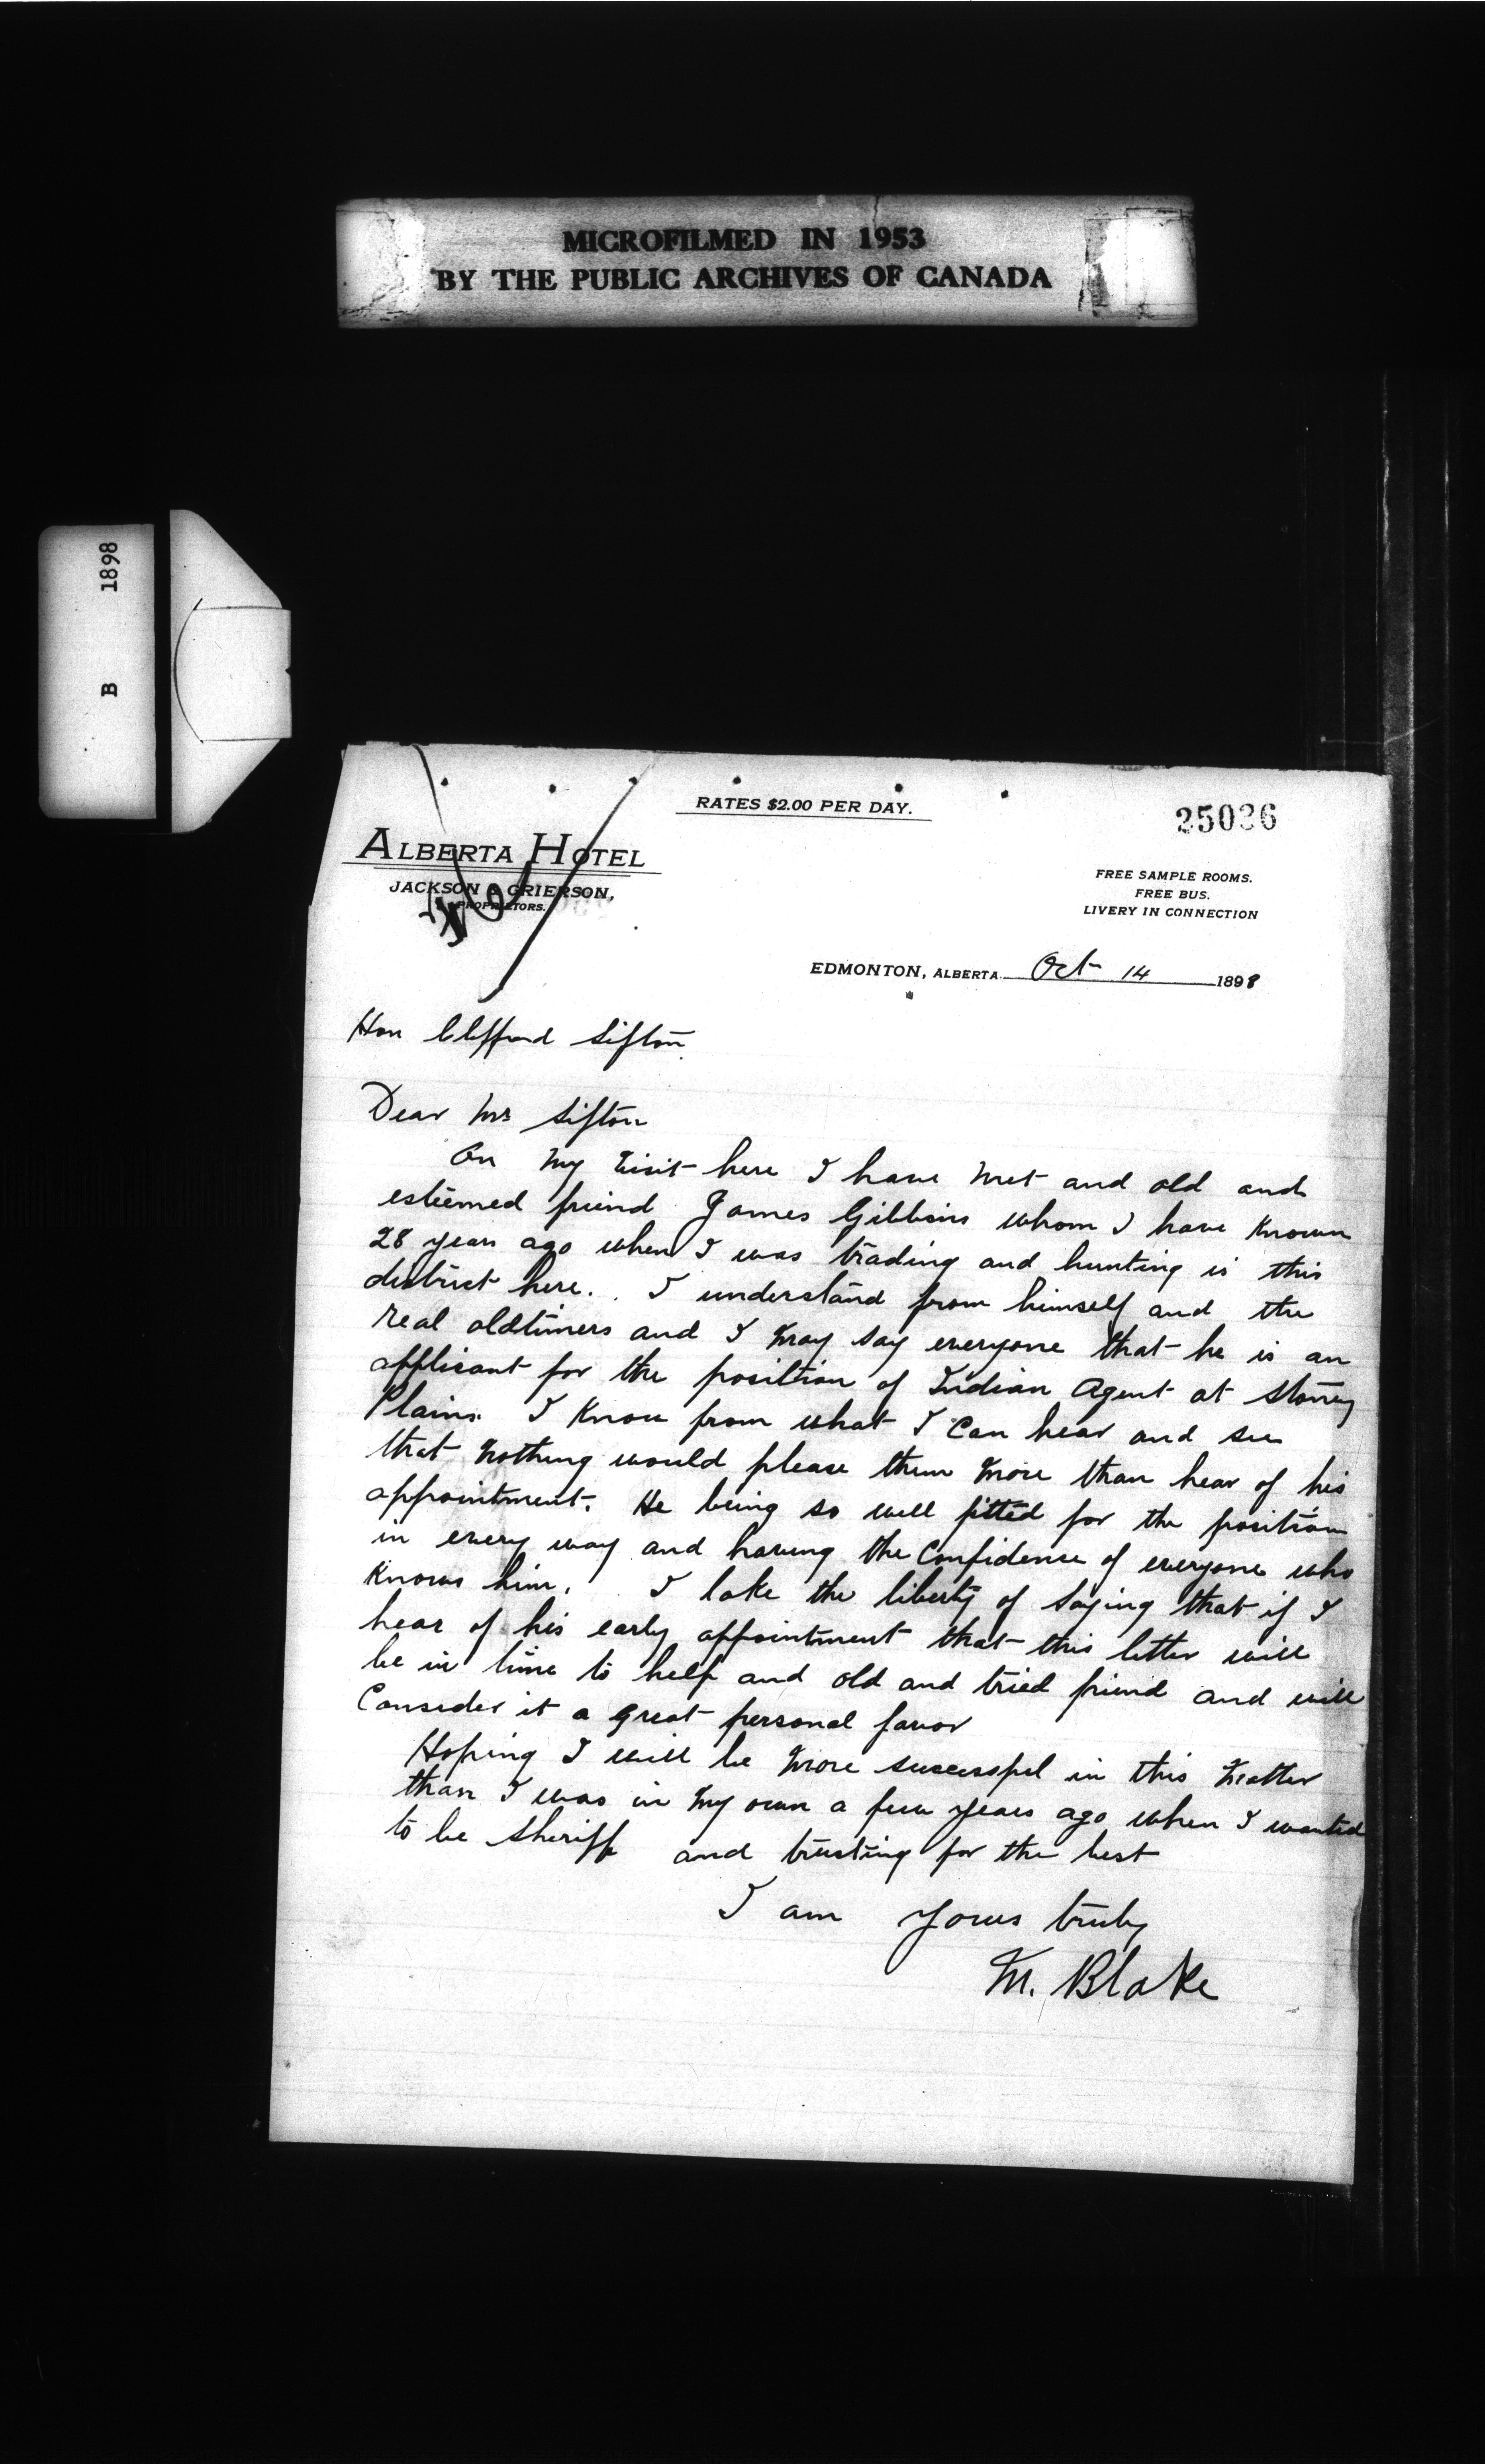 MICROFILMED IN 1953
BY THE PUBLIC ARCHIVES OF CANADA
B 1898
RATES $2.00 PER DAY.
25036
ALBERTA HOTEL
JACKSON & GRIERSON,
PROPRIETORS.
FREE SAMPLE ROOMS.
FREE BUS.
LIVERY IN CONNECTION
EDMONTON, ALBERTA Oct 14 1898
Hon Clifford Sifton
Dear Mr Sifton
On my visit here I have met and old and
esteemed friend James Gibbons whom I have known
28 years ago when I was trading and hunting is this
district here. I understand from himself and the
real oldtimers and I may say everyone that he is an
applicant for the position of Indian Agent at Stoney
Plains. I know from what I can hear and see
that nothing would please them more than hear of his
appointment. He being so well fitted for the position
in every way and having the confidence of everyone who
knows him. I take the liberty of saying that if I
hear of his early appointment that this letter will
be in time to help and old and tried friend and will
consider it a great personal favor
Hoping I will be more successful in this matter
than I was in my own a few years ago when I wanted
to be sheriff and trusting for the best
I am yours truly
M. Blake